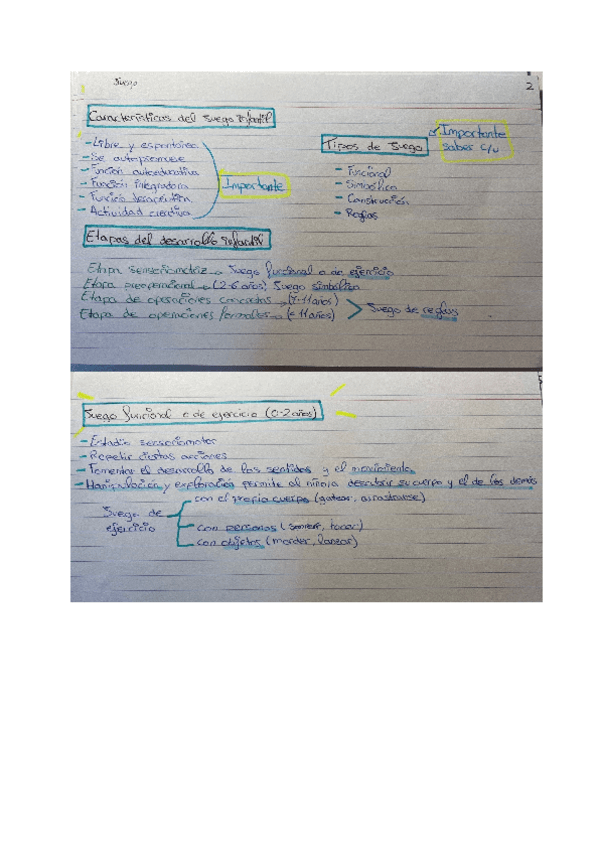 Juego
2
Características del Juego infantil
- Libre y espontáneo
- Se autopromueve
- Función autoeducativa
- Función integradora
- Función terapéutica
- Actividad creativa
Importante
Tipos de Juego
Importante
saber c/u
- Funcional
- Simbólico
- Construcción
- Reglas
Etapas del desarrollo infantil
Etapa sensoriomotriz → Juego funcional o de ejercicio
Etapa preoperacional → (2-6 años) Juego simbólico
Etapa de operaciones concretas → (7-11 años)
Etapa de operaciones formales → (+ 11 años)
Juego de reglas
Juego funcional o de ejercicio (0-2 años)
- Estadio sensoriomotor
- Repetir ciertas acciones
- Fomentar el desarrollo de los sentidos y el movimiento
- Manipulación y exploración permite al niño/a descubrir su cuerpo y el de los demás
Juego de
ejercicio
con el propio cuerpo (gatear, arrastrarse)
con personas (sonreír, tocar)
con objetos (morder, lanzar)